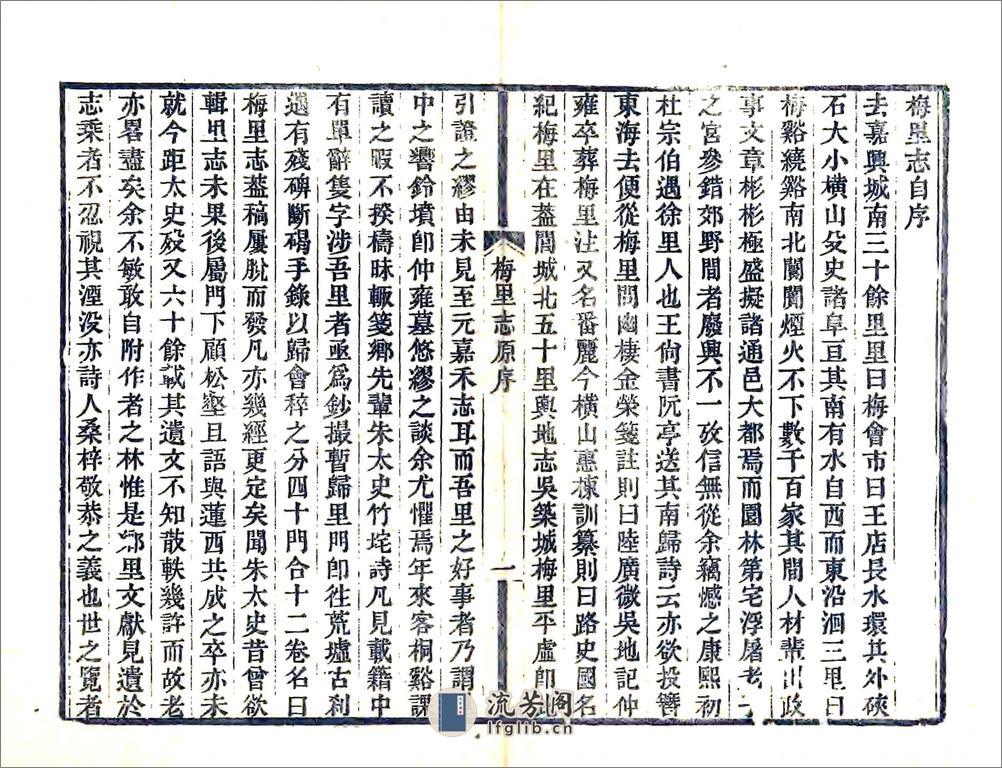 梅里志自序
去嘉興城南三十餘里里曰梅會市曰王店長水環其外硤
石大小橫山殳史諸阜亘其南有水自西而東沿洄三里曰
梅谿繞谿南北闤闠煙火不下數千百家其間人材輩出政
事文章彬彬極盛擬諸通邑大都焉而園林第宅浮屠老子
之宮參錯郊野間者廢興不一攷信無從余竊憾之康熙初
杜宗伯遇徐里人也王尙書阮亭送其南歸詩云亦欲投簪
東海去便從梅里問幽棲金榮箋註則曰陸廣微吳地記仲
雍卒葬梅里注又名番麗今橫山惠棟訓纂則曰路史國名
紀梅里在葢閭城北五十里輿地志吳築城梅里平虛卽
梅里志原序
一
引證之繆由未見至元嘉禾志耳而吾里之好事者乃謂
中之響鈴墳卽仲雍墓悠繆之談余尤懼焉年來客桐谿課
讀之暇不揆檮昧輙箋鄉先輩朱太史竹垞詩凡見載籍中
有單辭隻字涉吾里者亟爲鈔撮暫歸里門卽徃荒墟古刹
遇有殘碑斷碣手錄以歸會稡之分四十門合十二卷名曰
梅里志葢稿屢脫而發凡亦幾經更定矣聞朱太史昔曾欲
輯里志未果後屬門下顧松壑且語與蓮西共成之卒亦未
就今距太史歿又六十餘載其遺文不知散軼幾許而故老
亦畧盡矣余不敏敢自附作者之林惟是鄉里文獻見遺於
志乘者不忍視其湮没亦詩人桑梓敬恭之義也世之覽者
流芳阁
lfglib.cn